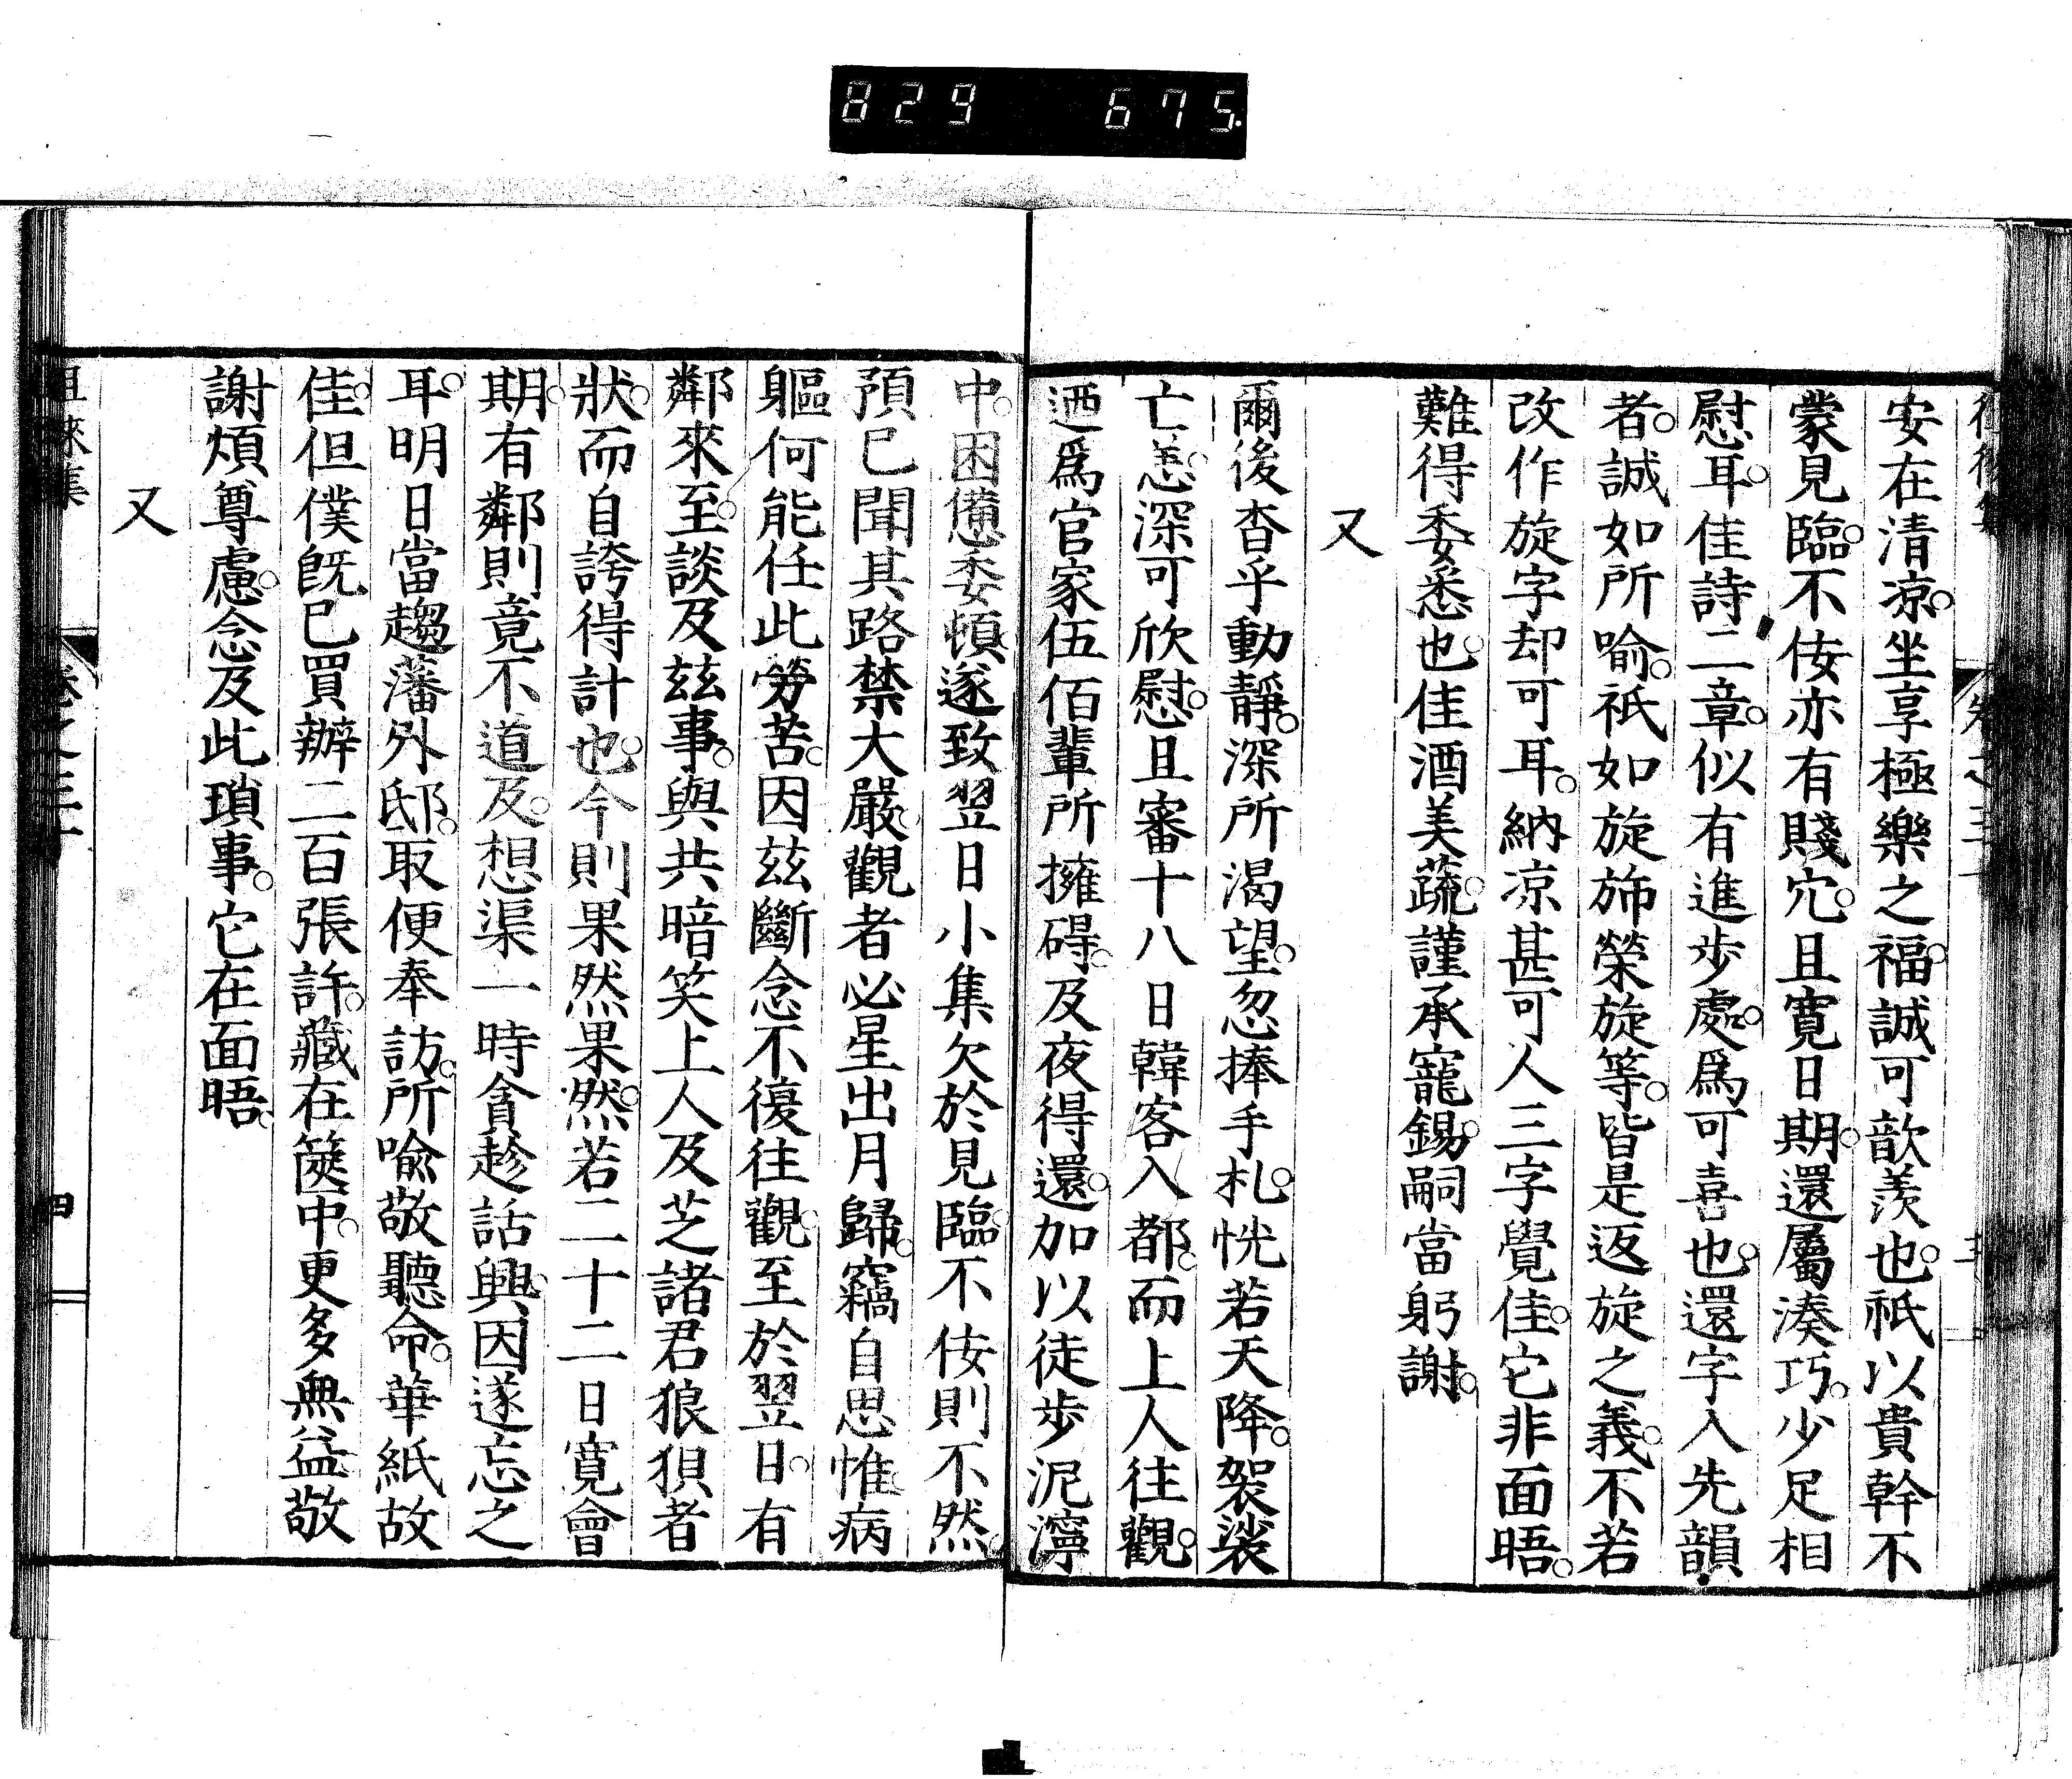 829 675
安在清凉。坐享極樂之福。誠可歆羨也。祇以貴幹不
蒙見臨。不佞亦有賤冗。且寛日期。還屬湊巧。少足相
慰耳。佳詩二章。似有進步處。爲可喜也。還字入先韻
者。誠如所喻。祇如旋斾榮旋等。皆是返旋之義。不若
改作旋字却可耳。納凉甚可人三字覺佳。它非面晤。
難得委悉也。佳酒美蔬。謹承寵錫。嗣當躬謝。
又
爾後杳乎動靜。深所渴望。忽捧手札。恍若天降。袈裟
亡恙。深可欣慰。且審十八日韓客入都。而上人往觀。
迺爲官家伍佰輩所擁碍。及夜得還。加以徒步泥濘
中。困憊委頓。遂致翌日小集欠於見臨。不佞則不然。
預已聞其路禁大嚴。觀者必星出月歸。竊自思惟。病
軀何能任此勞苦。因玆斷念不復往觀。至於翌日。有
鄰來至。談及玆事。與共暗笑上人及芝諸君狼狽者
狀。而自誇得計也。今則果然果然。若二十二日寛會
期。有鄰則竟不道及。想渠一時貪趁話興。因遂忘之
耳。明日當趨藩外邸。取便奉訪。所喩敬聽命。華紙故
佳。但僕旣已買辦二百張許。藏在篋中。更多無益。敬
謝煩尊慮。念及此瑣事。它在面晤。
又
徂徠集
卷之三十
四